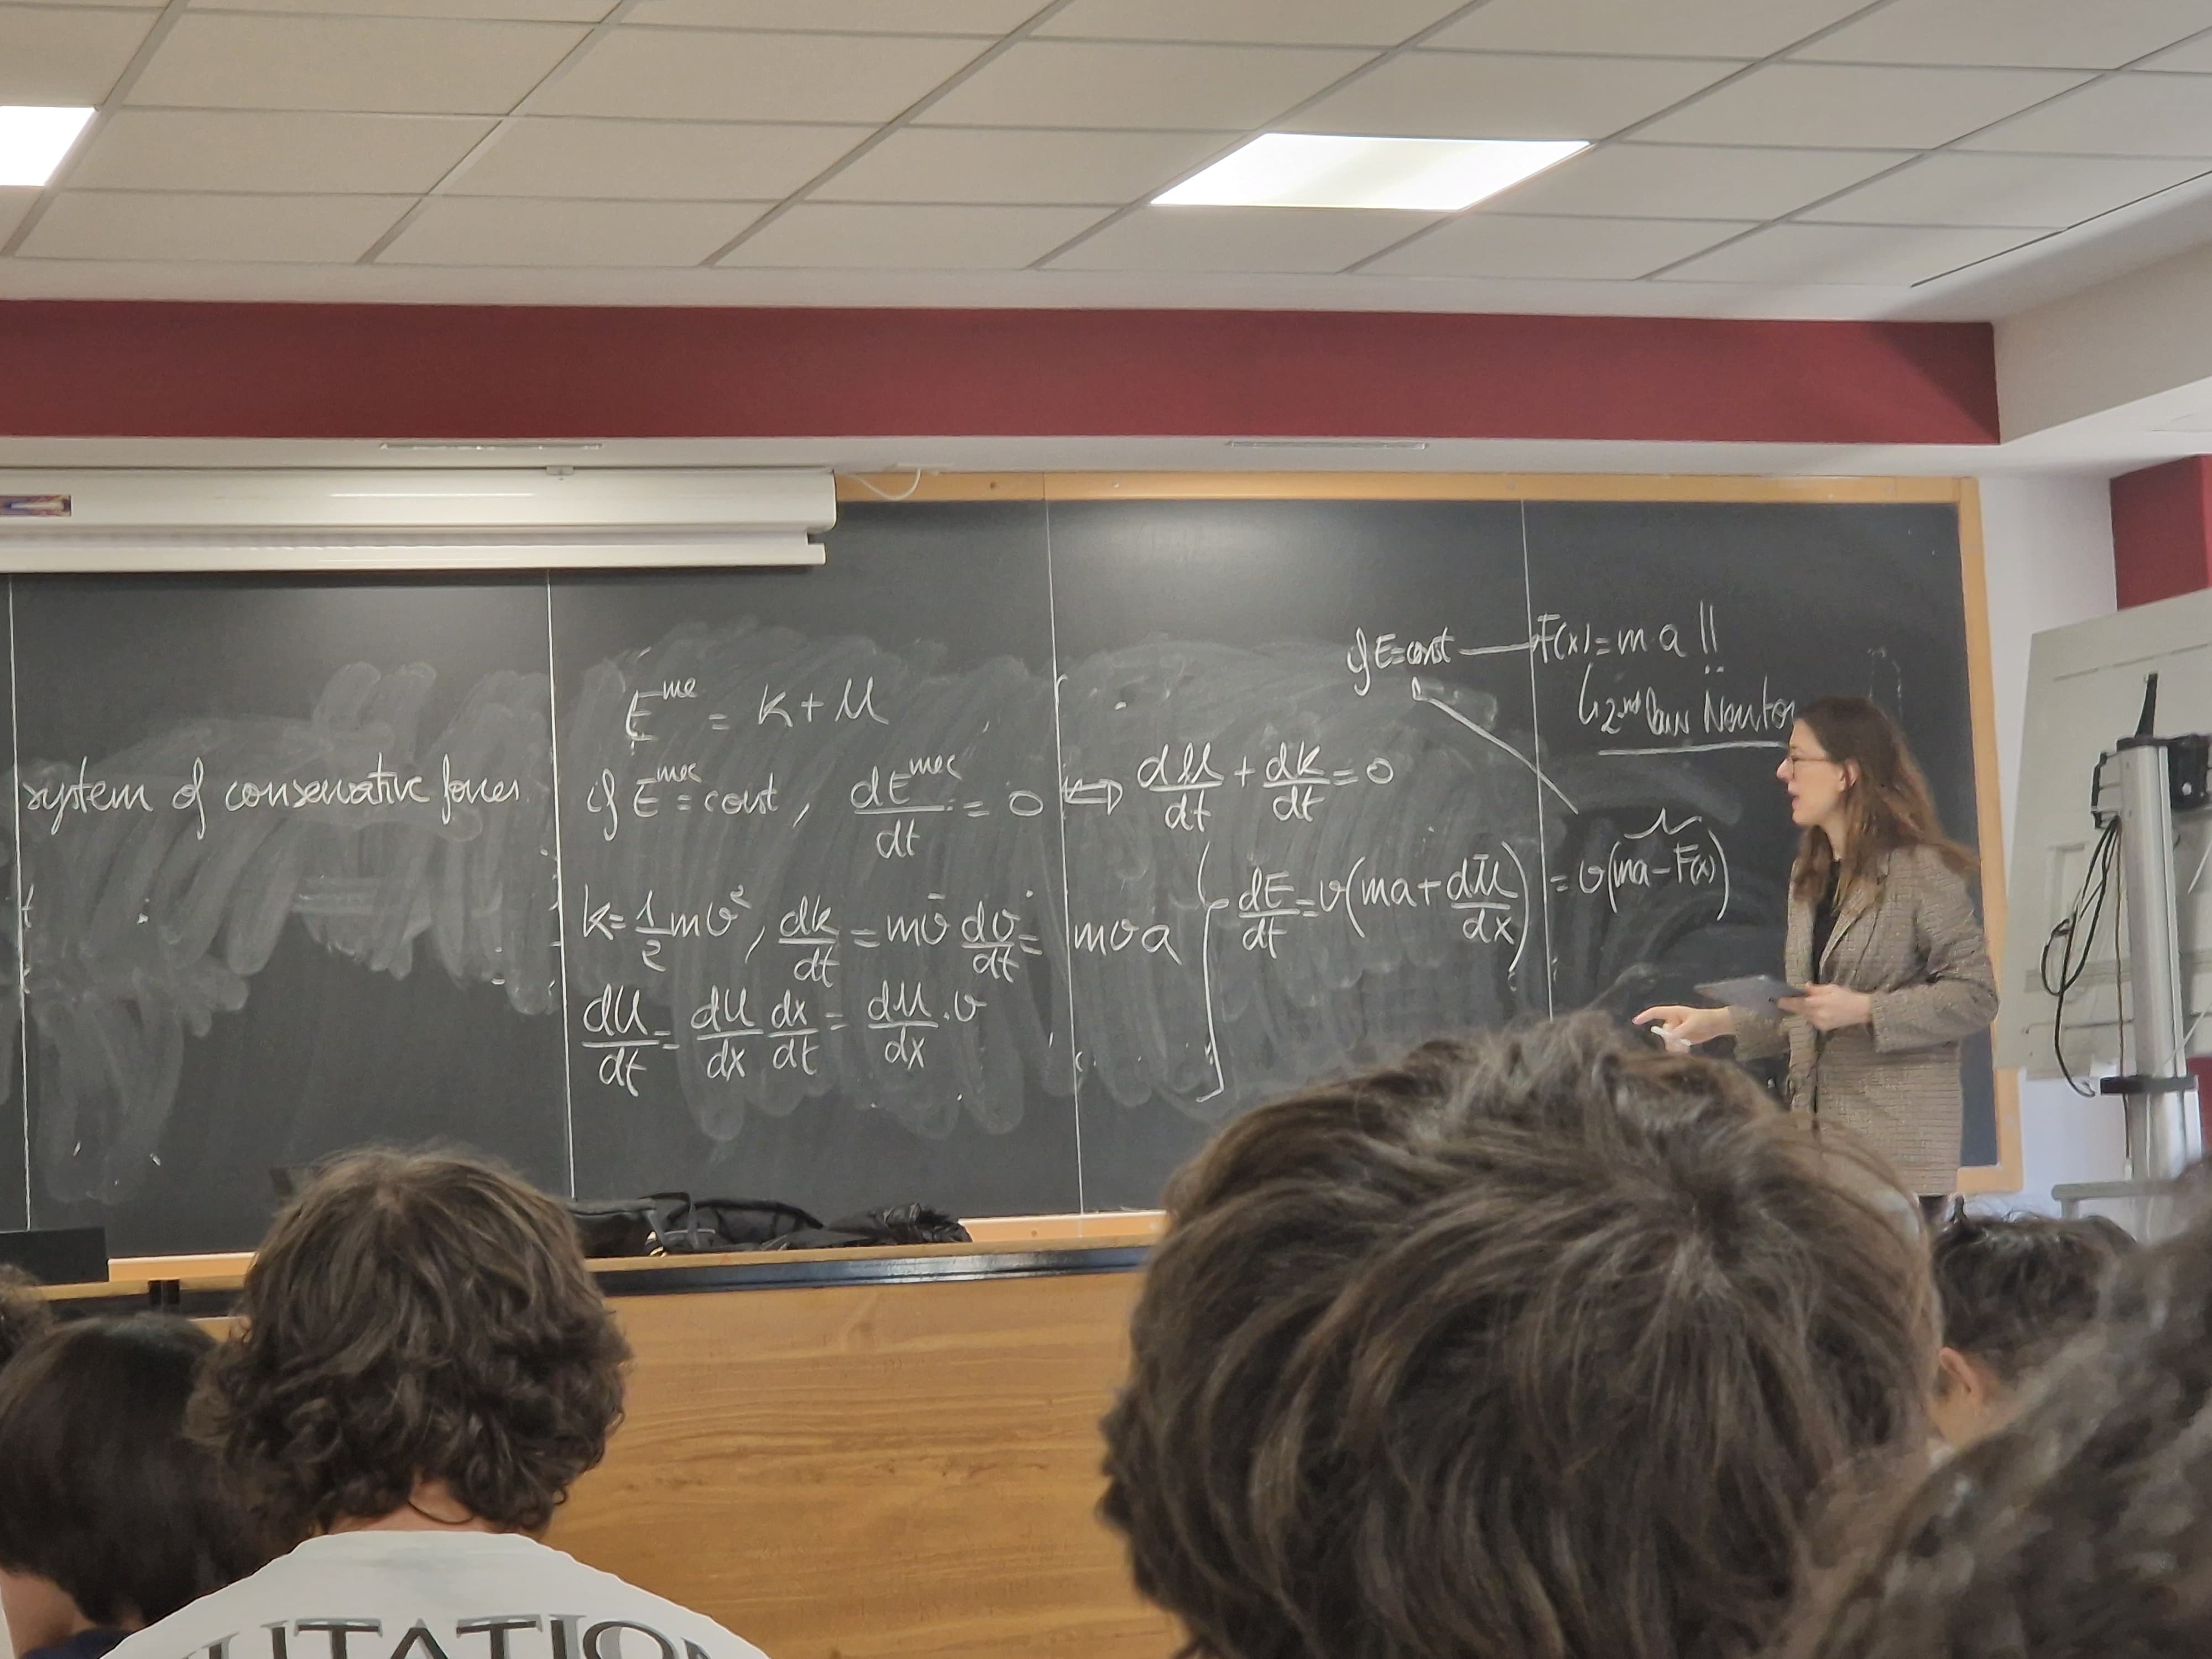 system of conservative forces
E^me = K + U
if E^mec = const, dE^mec/dt = 0 ⟺ dU/dt + dK/dt = 0
K = 1/2 mv², dK/dt = mv dv/dt = mva
dU/dt = dU/dx dx/dt = dU/dx · v
dE/dt = v(ma + dU/dx) = v(ma - F(x))
if E = const — F(x) = ma !!
↳ 2nd law Newton
UTATIO